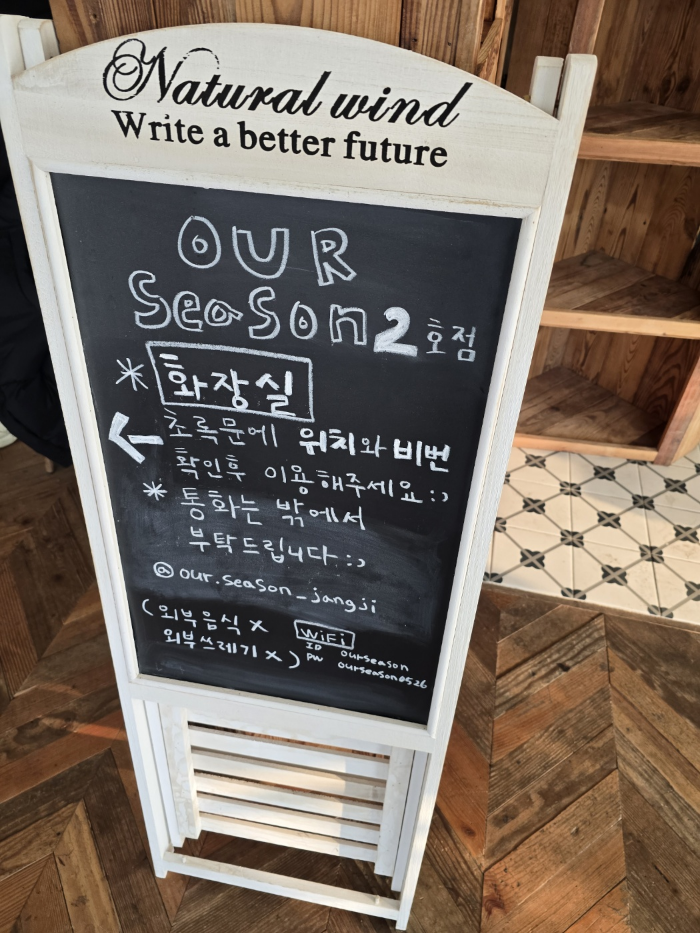 Natural wind
Write a better future
OUR
Season 2 호점
* 화장실
← 초록문에 위치와 비번
확인후 이용해주세요 :)
* 통화는 밖에서
부탁드립니다 :)
@ our.season_jangji
(외부음식 x
외부쓰레기 x)
WiFi
ID ourseason
PW ourseason0526